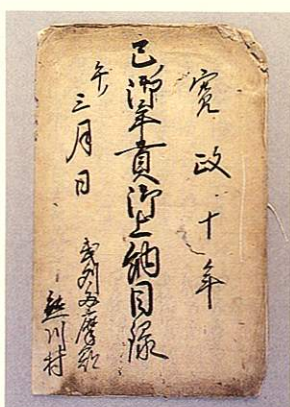 寛政十年
巳御年貢御上納目録
午三月日
武州多摩郡
熊川村